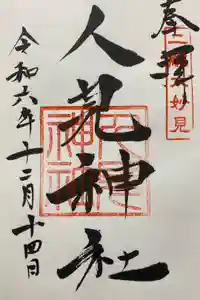 奉拝
妙見
人見神社
令和六年十二月十四日